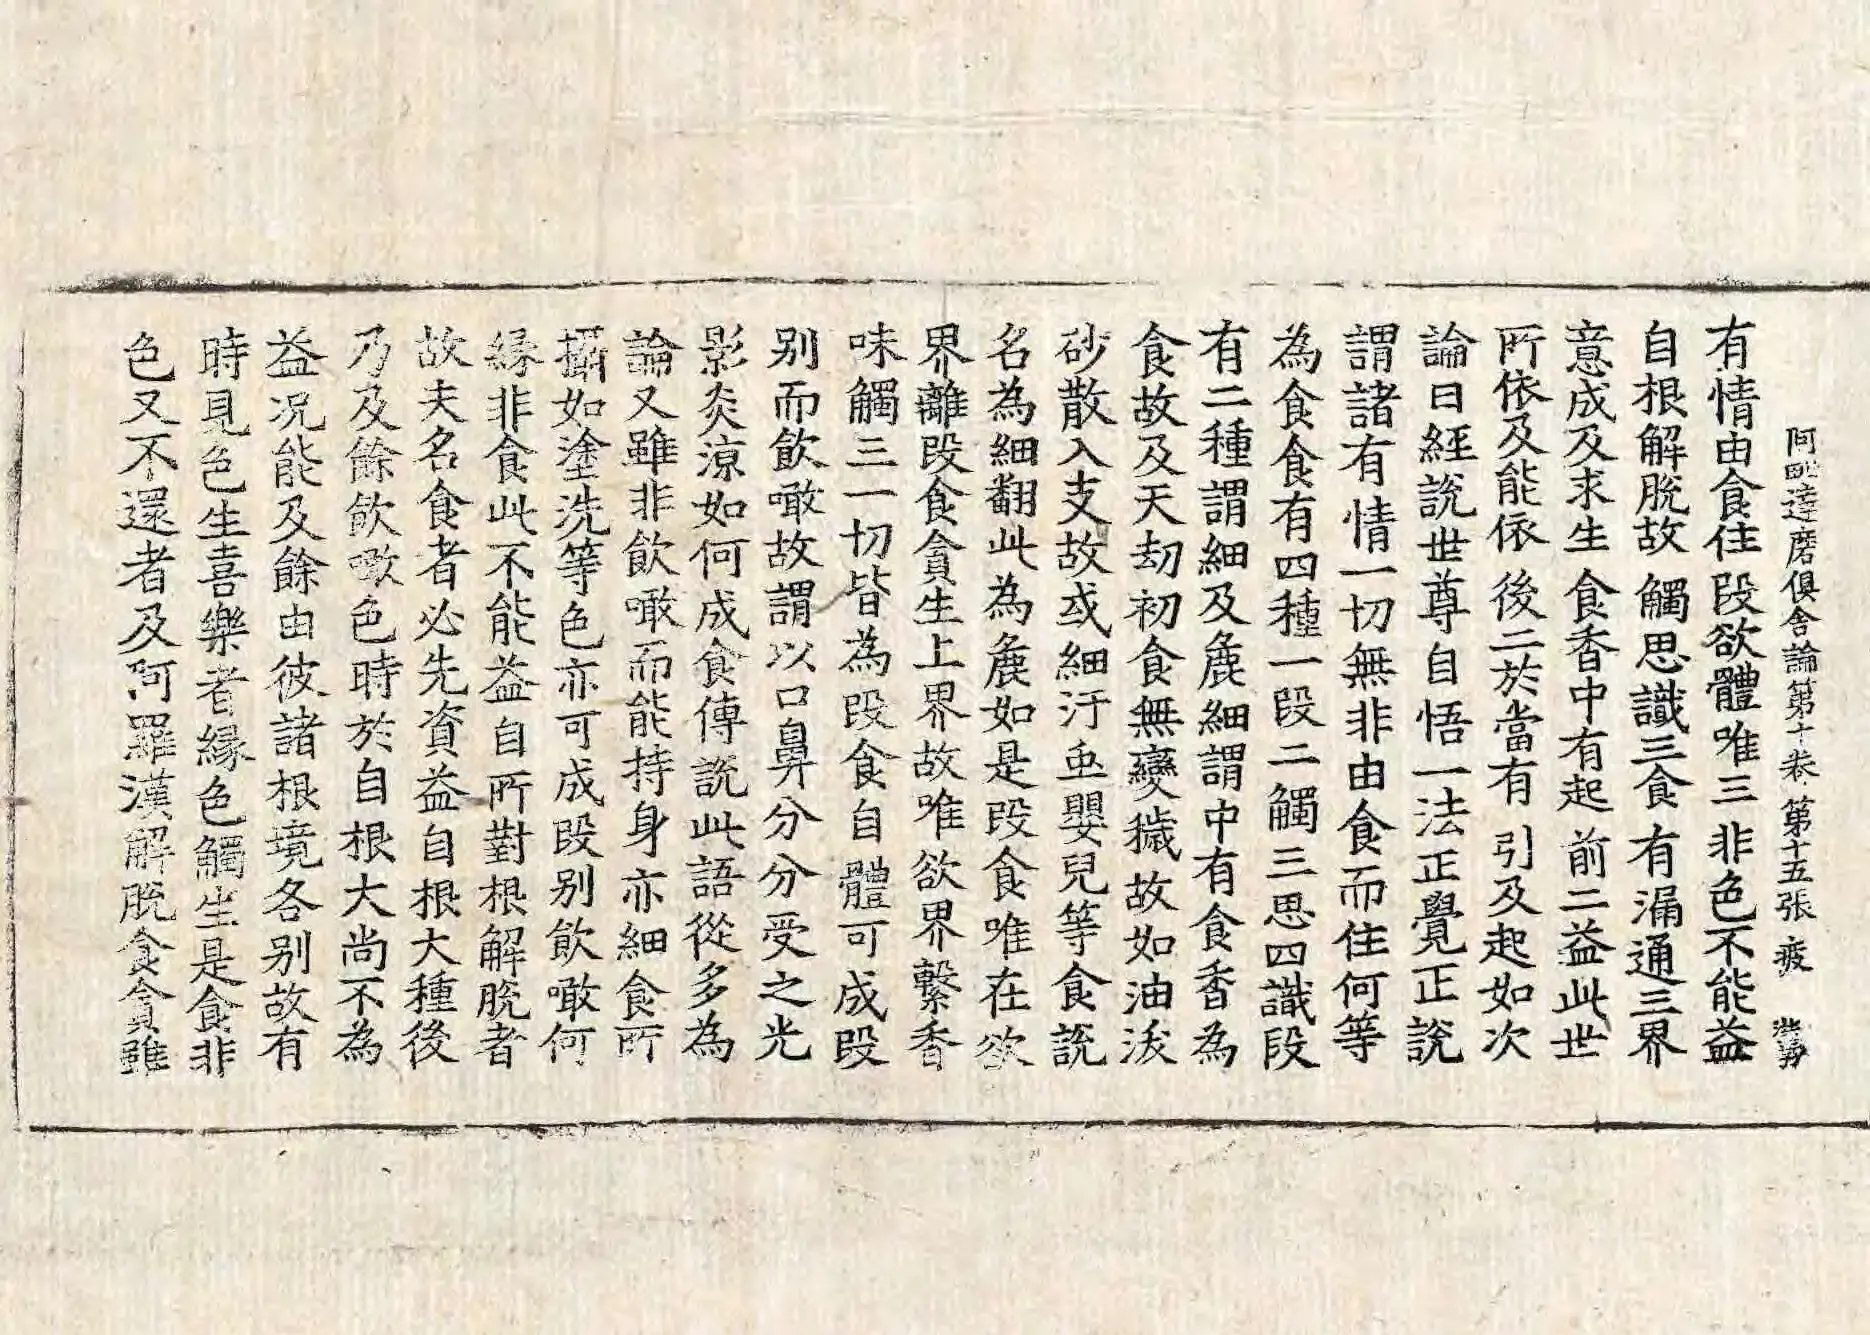 阿毗達磨俱舍論第十卷 第十五張 疲
有情由食住 段欲體唯三 非色不能益
自根解脫故 觸思識三食 有漏通三界
意成及求生 食香中有起 前二益此世
所依及能依 後二於當有 引及起如次
論曰經說世尊自悟一法正覺正說
謂諸有情一切無非由食而住何等
為食食有四種一段二觸三思四識段
有二種謂細及麁細謂中有食香為
食故及天劫初食無變穢故如油沃
砂散入支故或細汙虫嬰兒等食說
名為細翻此為麁如是段食唯在欲
界離段食貪生上界故唯欲界繫香
味觸三一切皆為段食自體可成段
別而飲噉故謂以口鼻分分受之光
影炎涼如何成食傳說此語從多為
論又雖非飲噉而能持身亦細食所
攝如塗洗等色亦可成段別飲噉何
緣非食此不能益自所對根解脫者
故夫名食者必先資益自根大種後
乃及餘飲噉色時於自根大尚不為
益況能及餘由彼諸根境各別故有
時見色生喜樂者緣色觸生是食非
色又不還者及阿羅漢解脫食貪雖